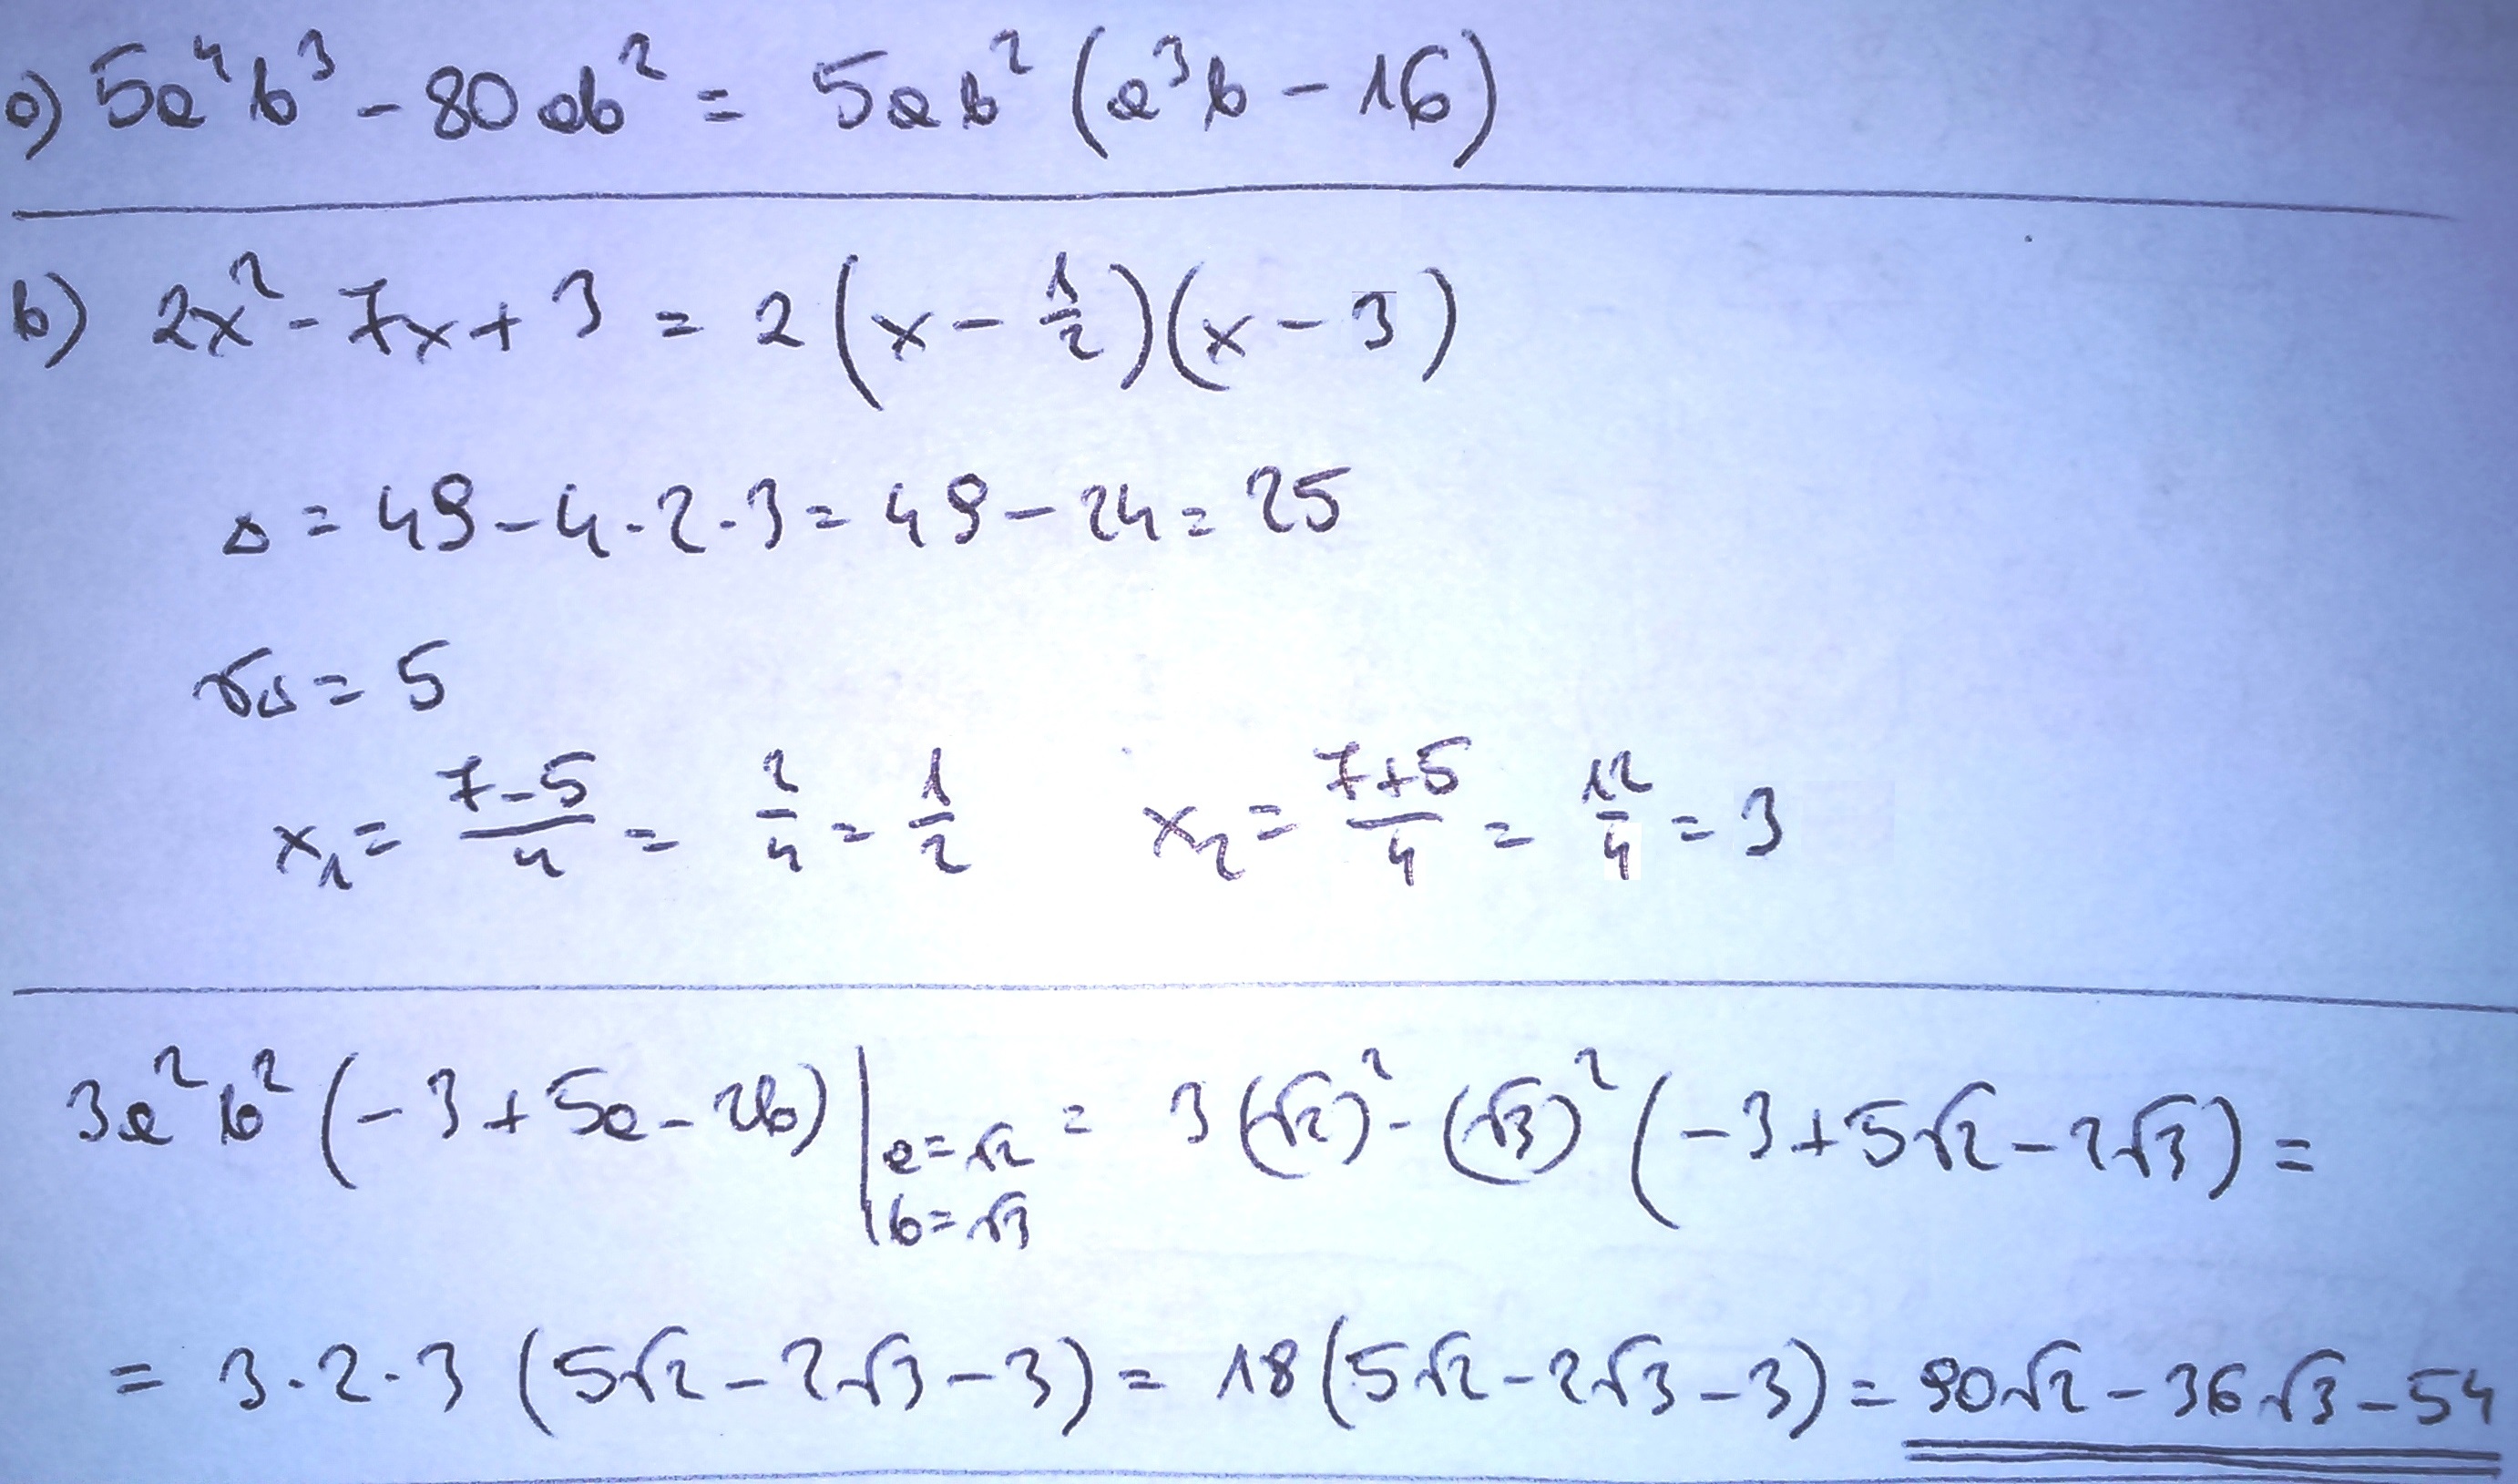 a) 5a⁴b³ - 80ab² = 5ab² (a³b - 16)
b) 2x² - 7x + 3 = 2(x - 1/2)(x - 3)
Δ = 49 - 4·2·3 = 49 - 24 = 25
√Δ = 5
x₁ = (7-5)/4 = 2/4 = 1/2 x₂ = (7+5)/4 = 12/4 = 3
3a²b² (-3 + 5a - 2b) | a=√2 b=√3 = 3(√2)² · (√3)² (-3 + 5√2 - 2√3) =
= 3·2·3 (5√2 - 2√3 - 3) = 18 (5√2 - 2√3 - 3) = 90√2 - 36√3 - 54